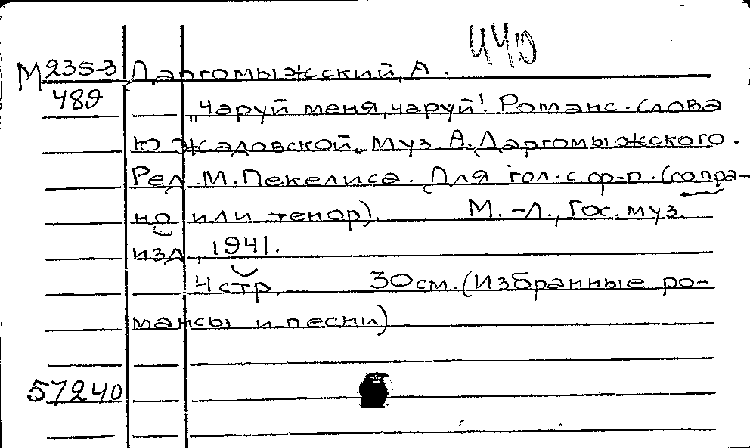 440
М 235-3 Даргомыжский, А.
489 "Чаруй меня, чаруй! Романс. Слова
Ю. Жадовской. Муз. А. Даргомыжского.
Ред. М. Пекелиса. Для гол. с ф-п. (сопра-
но или тенор). М.-Л., Гос. муз.
изд., 1941.
4 стр. 30 см. (Избранные ро-
мансы и песни)
57240